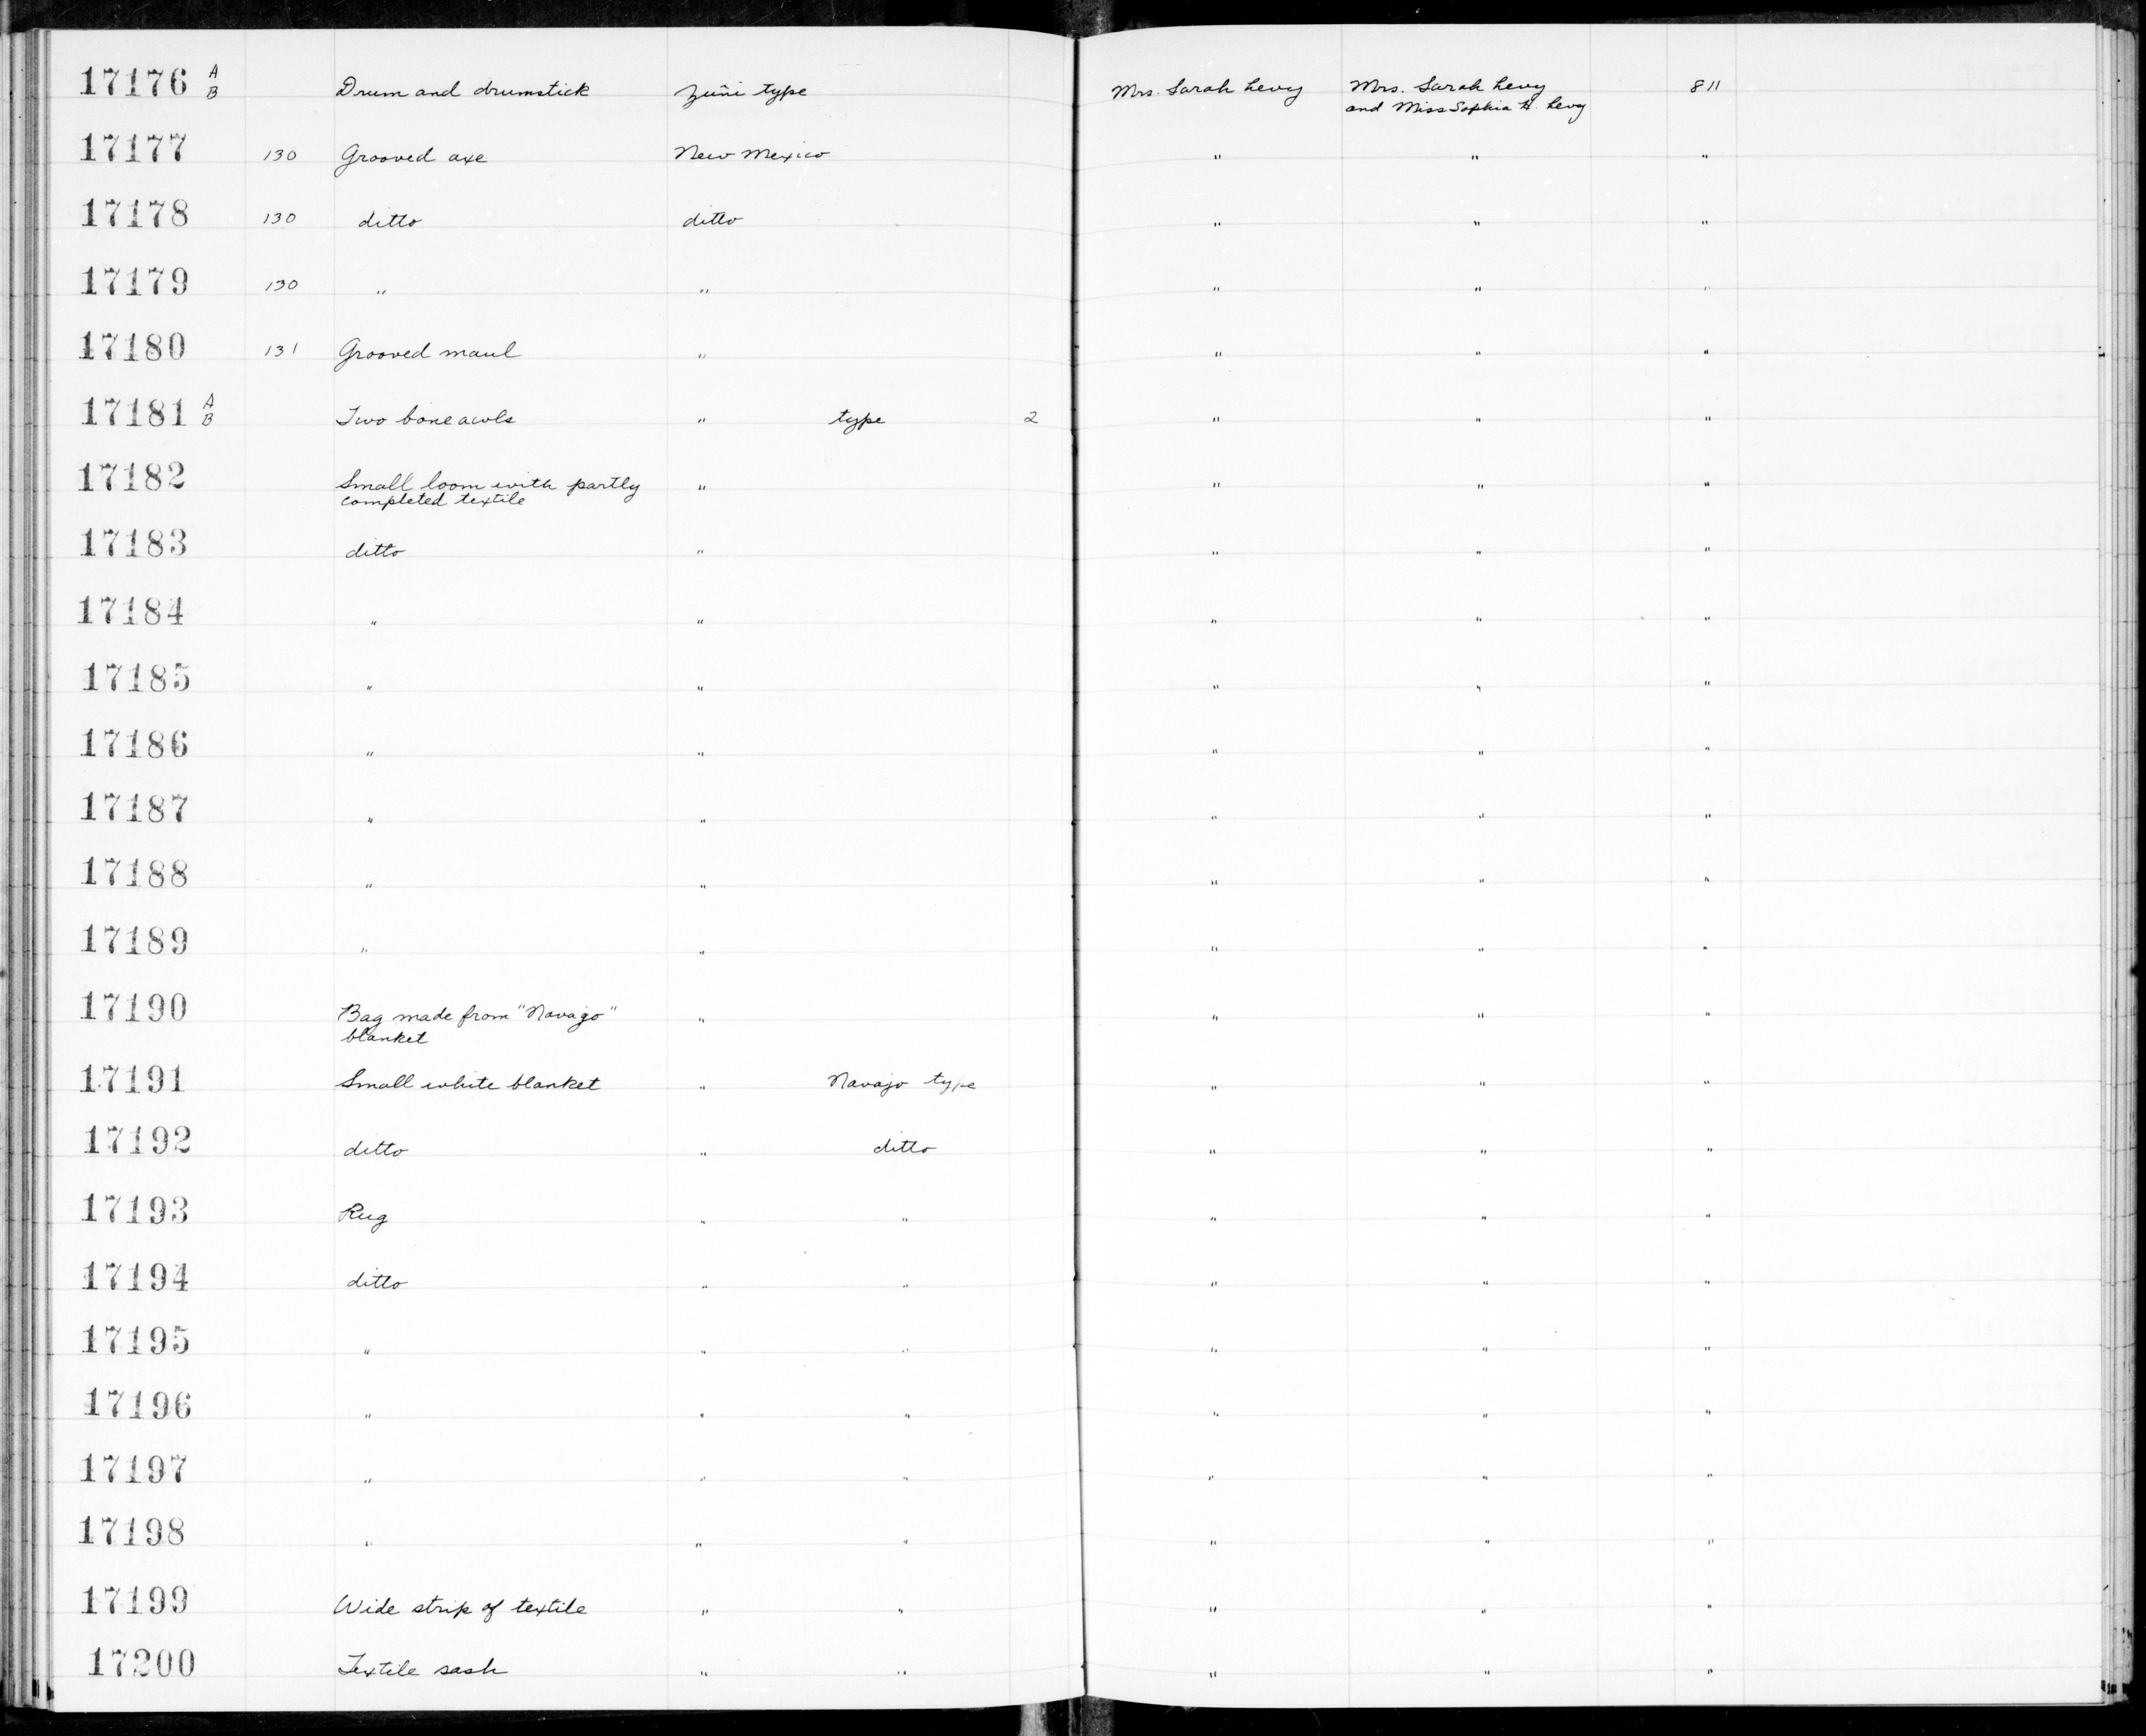 17176 A B Drum and drumstick Zuñi type Mrs. Sarah Levy Mrs. Sarah Levy 811
and Miss Sophia H. Levy
17177 130 Grooved axe New Mexico " " "
17178 130 ditto ditto " " "
17179 130 " " " " "
17180 131 Grooved maul " " " "
17181 A B Two bone awls " type 2 " " "
17182 Small loom with partly " " " "
completed textile
17183 ditto " " " "
17184 " " " " "
17185 " " " " "
17186 " " " " "
17187 " " " " "
17188 " " " " "
17189 " " " " "
17190 Bag made from "Navajo" " " " "
blanket
17191 Small white blanket " Navajo type " " "
17192 ditto " ditto " " "
17193 Rug " " " " "
17194 ditto " " " " "
17195 " " " " " "
17196 " " " " " "
17197 " " " " " "
17198 " " " " " "
17199 Wide strip of textile " " " " "
17200 Textile sash " " " " "